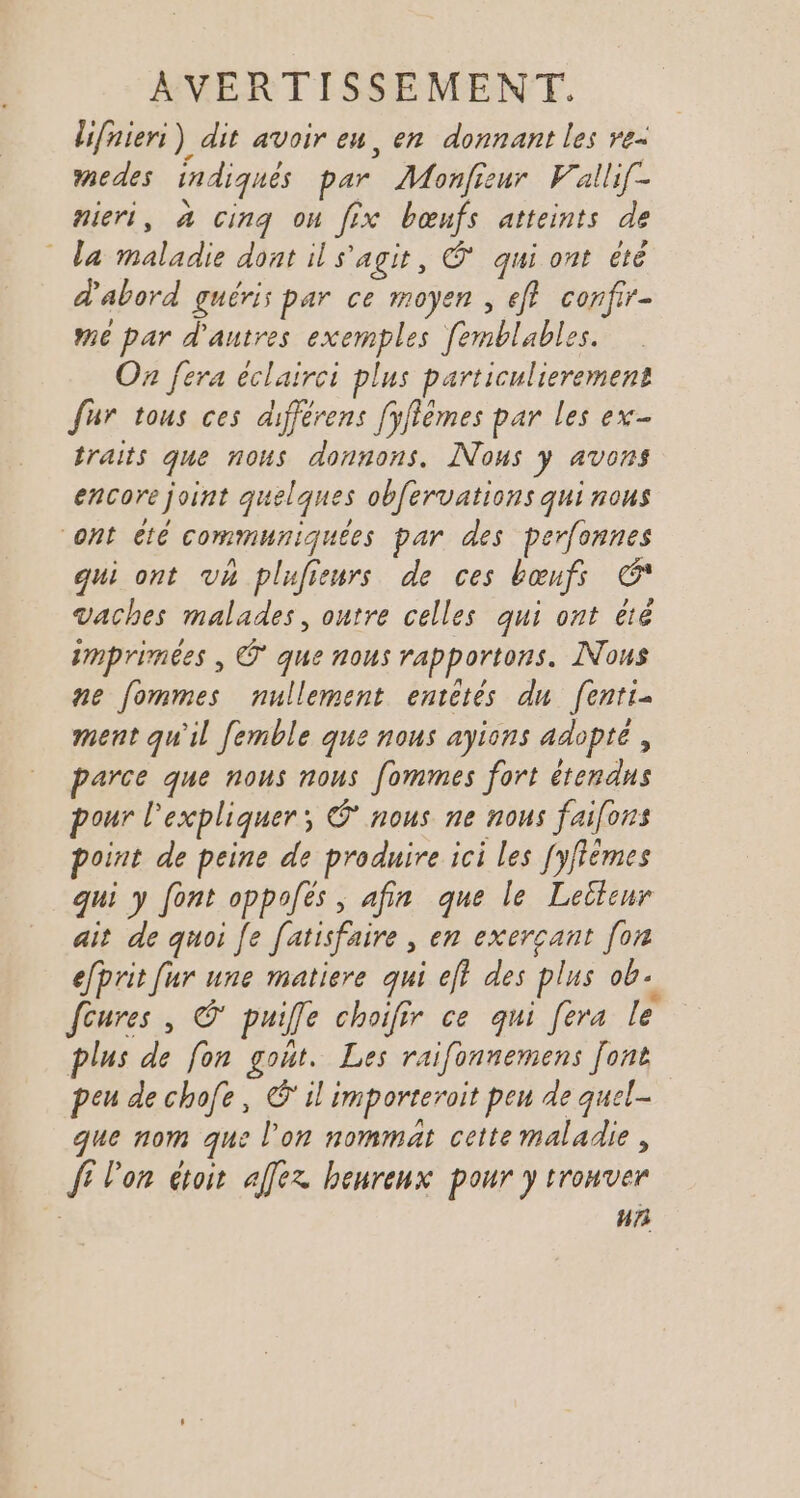 AVERTISSEMENT.
liſnieri) dit avoir eu, en donnant les re-
medes indiqués par Monſieur Valliſ-
nieri, à cinq ou ſix bœufs atteints de
la maladie dont il s'agit, & qui ont été
d'abord guéris par ce moyen, eſt confir-
mé par d'autres exemples ſemblables.
On ſera éclairci plus particulierement
ſur tous ces différens ſyſtêmes par les ex-
traits que nous donnons. Nous y avons
encore joint quelques obſervations qui nous
ont été communiquées par des perſonnes
qui ont vû pluſieurs de ces bœufs &
vaches malades, outre celles qui ont été
imprimées, & que nous rapportons. Nous
ne ſommes nullement entêtés du ſenti-
ment qu'il ſemble que nous ayions adopté,
parce que nous nous ſommes fort étendus
pour l'expliquer; & nous ne nous faiſons
point de peine de produire ici les ſyſtêmes
qui y ſont oppoſés, afin que le Lecteur
ait de quoi ſe ſatisfaire, en exerçant ſon
eſprit ſur une matiere qui eſt des plus ob-
ſcures, & puiſſe choiſir ce qui ſera le
plus de ſon goût. Les raiſonnemens ſont
peu de choſe, & il importeroit peu de quel-
que nom que l'on nommât cette maladie,
ſi l'on étoit aſſez heureux pour y trouver
un